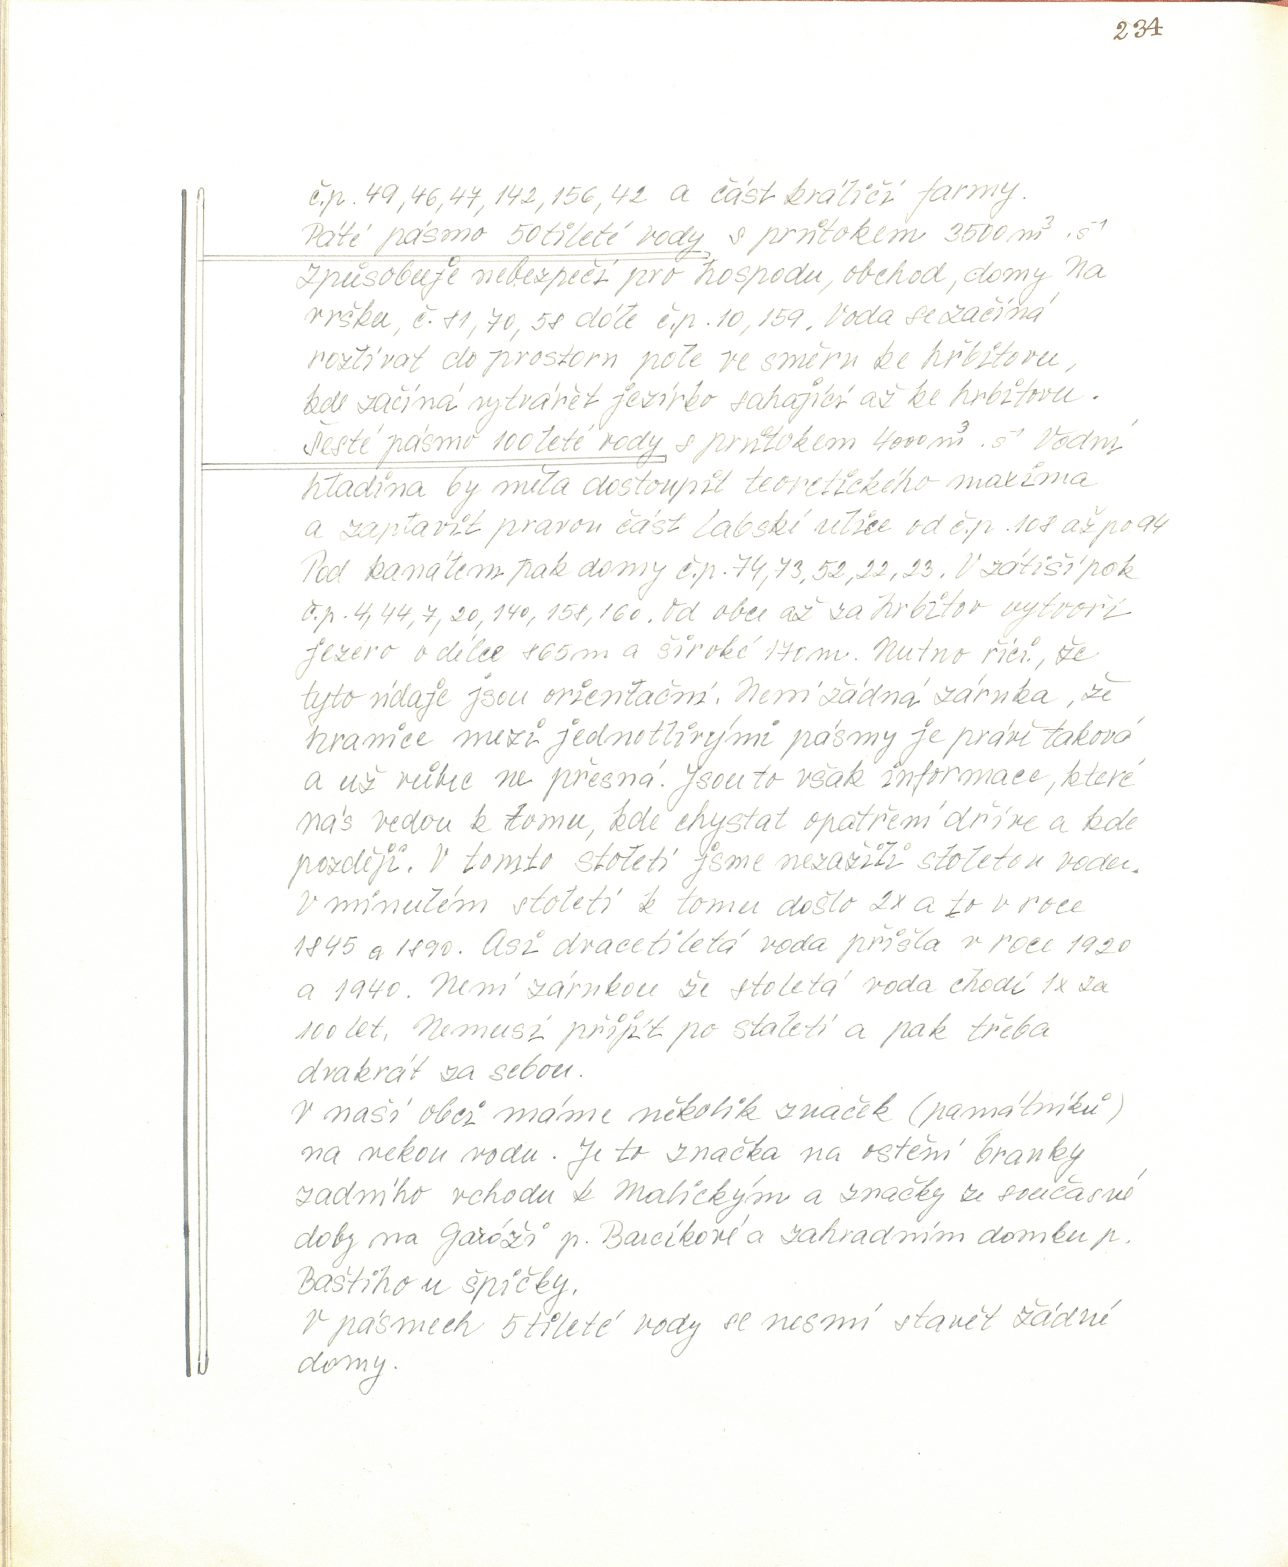 234
č.p. 49, 46, 47, 142, 156, 42 a část králičí farmy.
Páté pásmo 50tileté vody s průtokem 3500 m³ . s⁻¹
způsobuje nebezpečí pro hospodu, obchod, domy Na
vršku, č. 81, 70, 58 dóle č.p. 10, 159. Voda se začíná
rozlívat do prostoru pole ve směru ke hřbitovu,
kde začíná vytvářet jezírko sahající až ke hrbitovu.
Šesté pásmo 100leté vody s průtokem 4000 m³ . s⁻¹ Vodní
hladina by měla dostoupit teoretického maxima
a zaplavit pravou část labské ulice od č.p. 108 až po 94
Pod kanálem pak domy č.p. 74, 73, 52, 22, 23. V zátiší pok
č.p. 4, 44, 7, 20, 140, 158, 160. Od obce až za hrbitov vytvoří
jezero o délce 865 m a široké 170 m. Nutno říci, že
tyto údaje jsou orientační. Není žádná záruka, že
hranice mezi jednotlivými pásmy je právě taková
a už vůbec ne přesná. Jsou to však informace, které
nás vedou k tomu, kde chystat opatření dříve a kde
později. V tomto století jsme nezažili stoletou vodu.
V minulém století k tomu došlo 2x a to v roce
1845 a 1890. Asi dvacetiletá voda přišla v roce 1920
a 1940. Není zárukou že stoletá voda chodí 1x za
100 let. Nemusí přijít po staletí a pak třeba
dvakrát za sebou.
V naší obci máme několik značek (památníků)
na vekou vodu. Je to značka na ostění branky
zadního vchodu k Malickým a značky ze současné
doby na garáži p. Barcíkové a zahradním domku p.
Baštího u špičky.
V pásmech 5tileté vody se nesmí stavět žádné
domy.